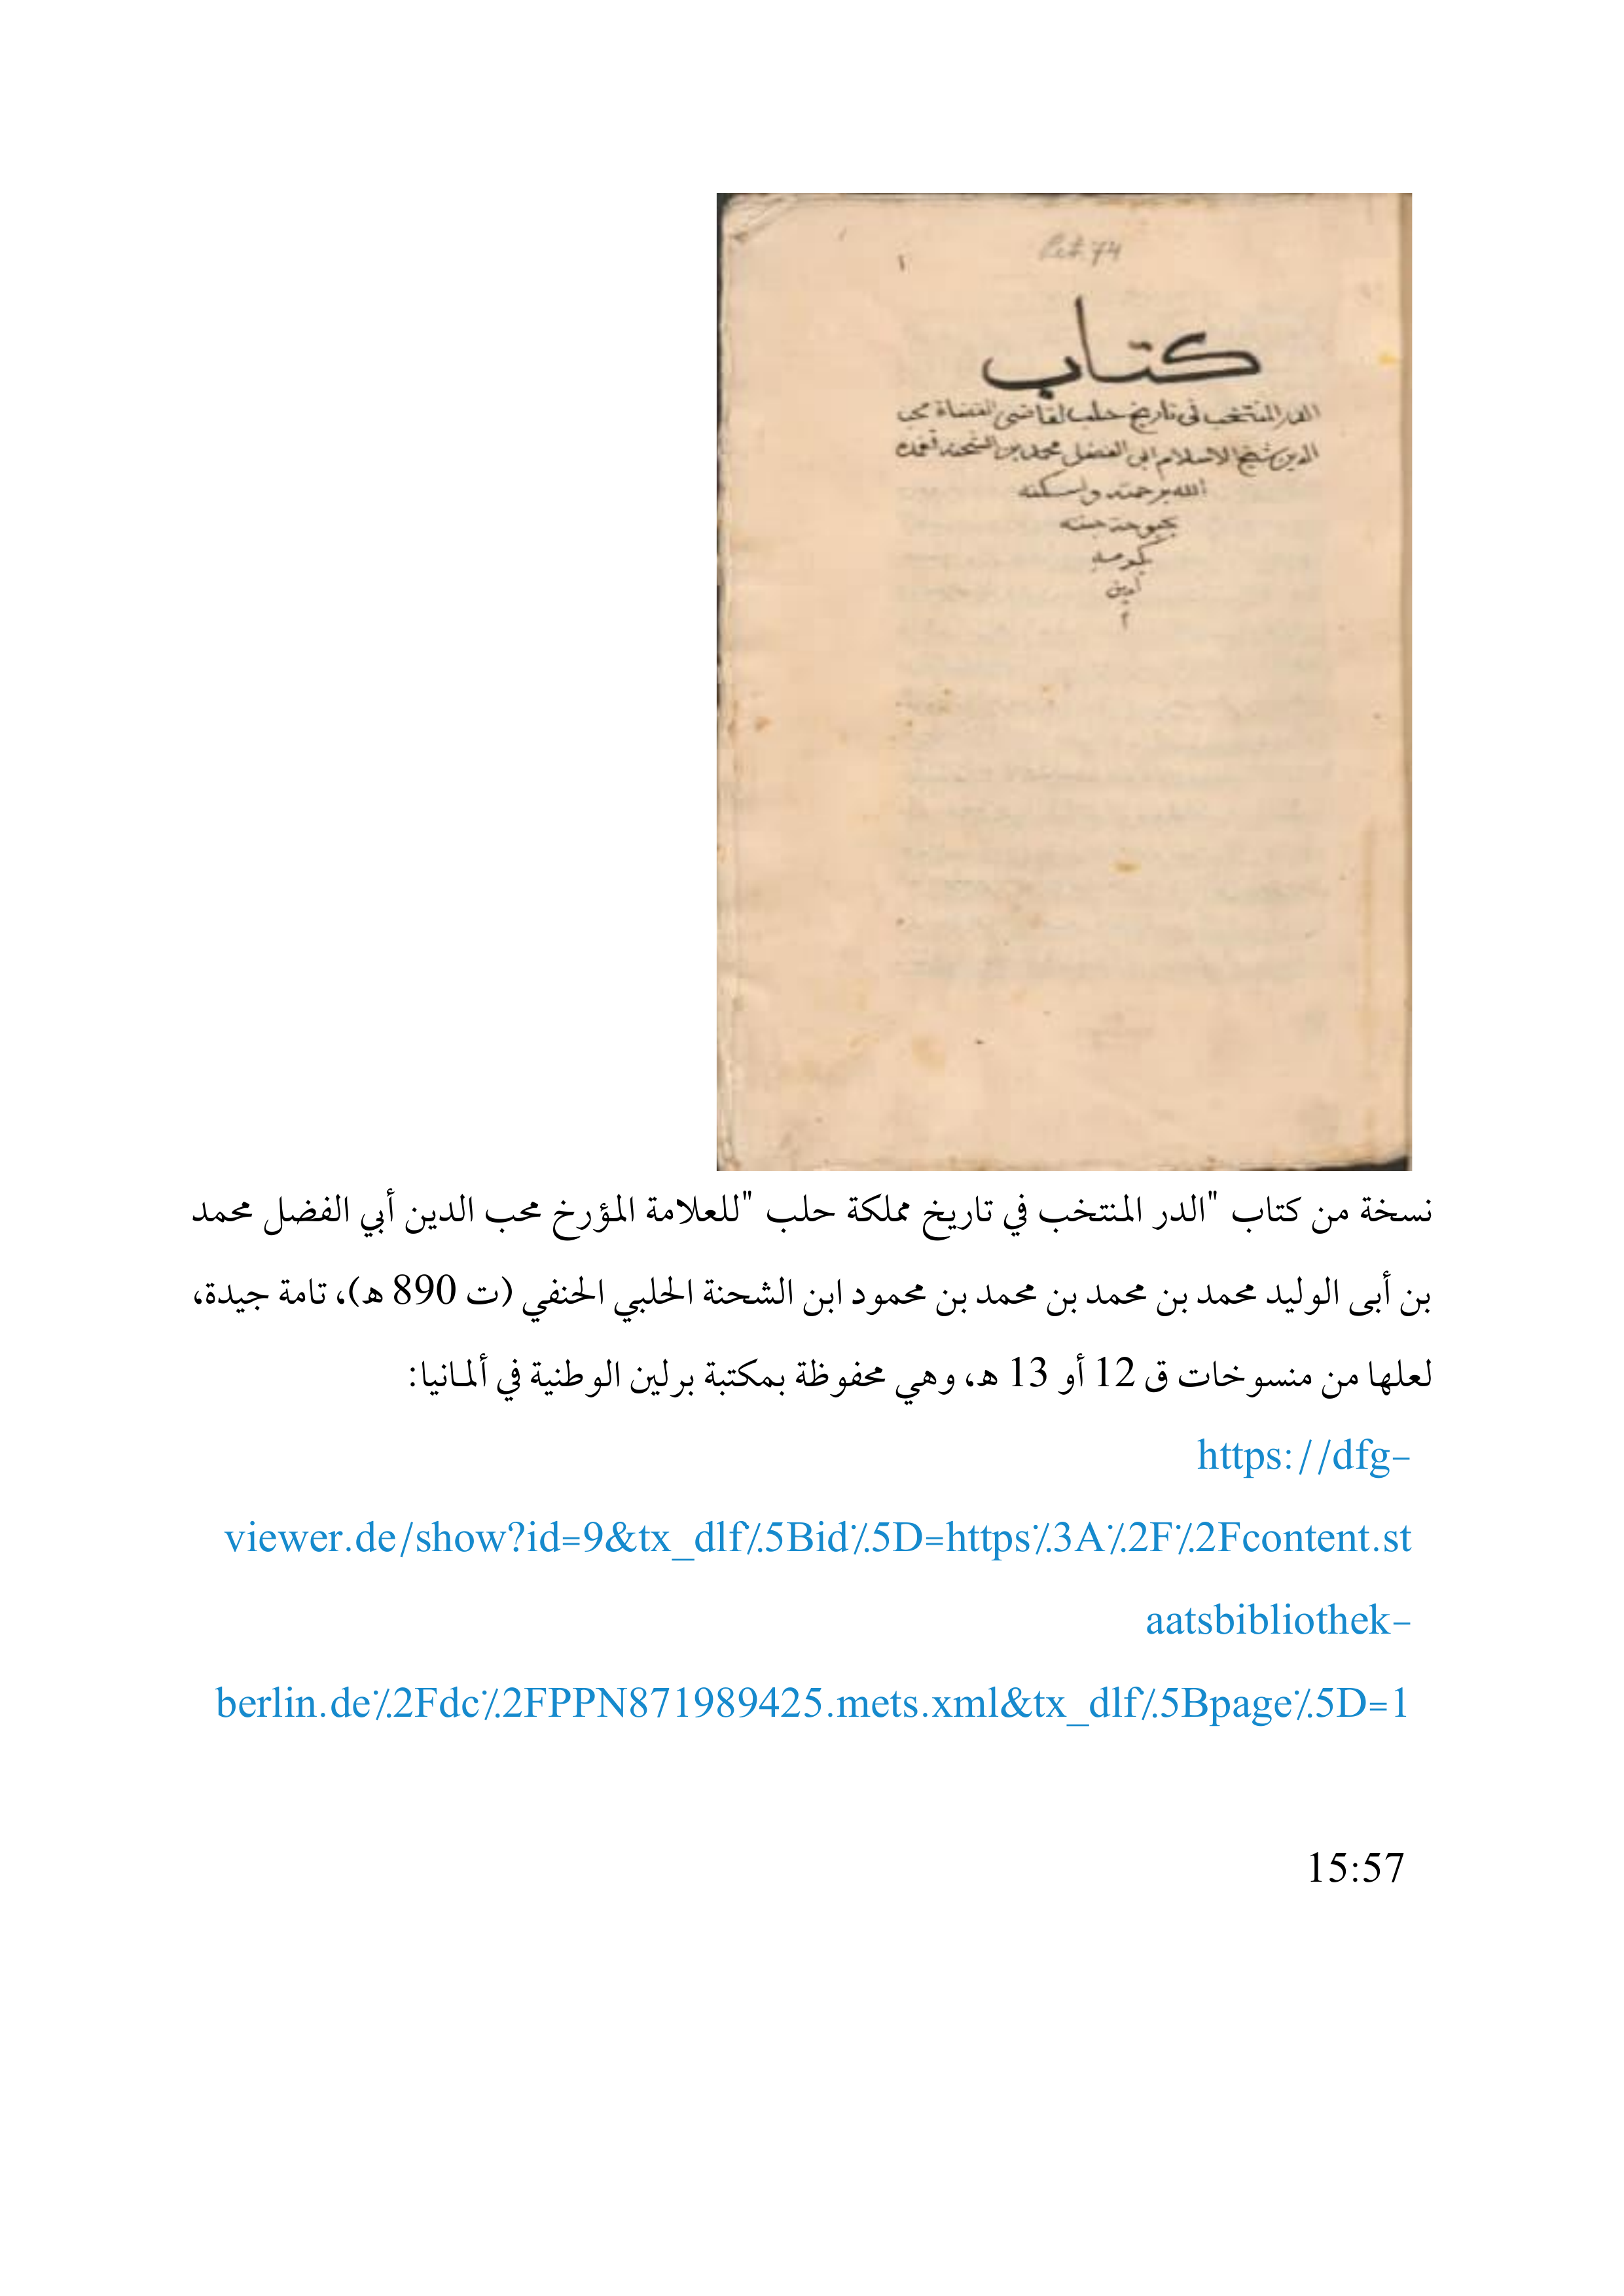 Pet. 74
١
كتاب
الدر المنتخب في تاريخ حلب لقاضي القضاة محب
الدين شيخ الاسلام ابي الفضل محمد بن الشحنه تغمده
الله برحمته واسكنه
بحبوحة جنته
بكرمه
امين
نسخة من كتاب "الدر المنتخب في تاريخ مملكة حلب "للعلامة المؤرخ محب الدين أبي الفضل محمد
بن أبى الوليد محمد بن محمد بن محمد بن محمود ابن الشحنة الحلبي الحنفي (ت 890 هـ)، تامة جيدة،
لعلها من منسوخات ق 12 أو 13 هـ، وهي محفوظة بمكتبة برلين الوطنية في ألمانيا:
https://dfg-
viewer.de/show?id=9&tx_dlf%5Bid%5D=https%3A%2F%2Fcontent.st
aatsbibliothek-
berlin.de%2Fdc%2FPPN871989425.mets.xml&tx_dlf%5Bpage%5D=1
15:57